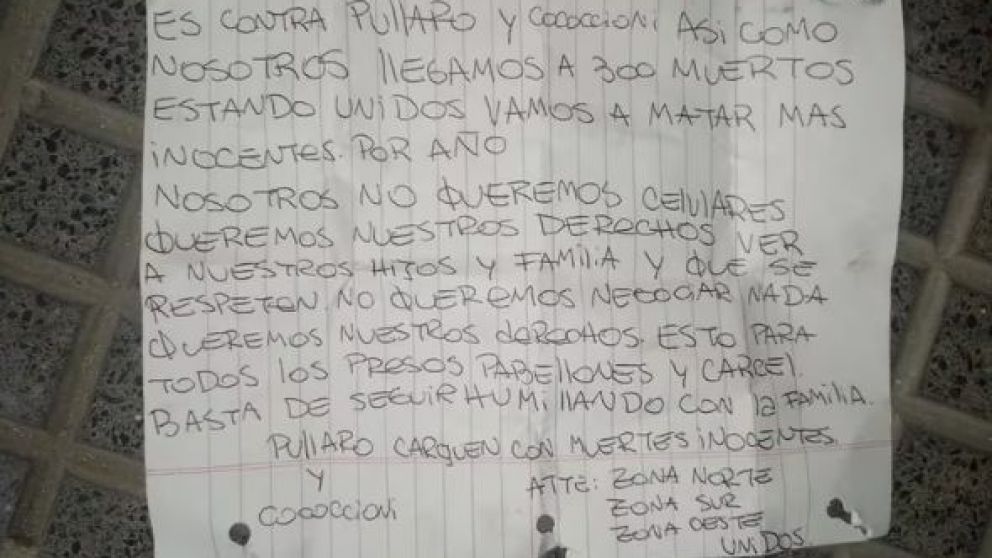 ES CONTRA PULLARO Y COCOCCIONI ASi COMO
NOSOTROS llEGAMOS A 300 MUERTOS
ESTANDO UNIDOS VAMOS A MATAR MAS
INOCENTES. POR AÑO
NOSOTROS NO QUEREMOS CELULARES
QUEREMOS NUESTROS DERECHOS VER
A NUESTROS HIJOS Y FAMILIA Y QUE SE
RESPETEN. NO QUEREMOS NEGOCIAR NADA
QUEREMOS NUESTROS dERECHOS. ESTO PARA
TODOS LOS PRESOS PABELLONES Y CARCEL.
BASTA DE SEGUIR HUMILLANDO CON la FAMILIA.
PULLARO CARGUEN CON MUERTES INOCENTES.
Y
COCOCCIONI
ATTE: ZONA NORTE
ZONA SUR
ZONA OESTE
UNIDOS.